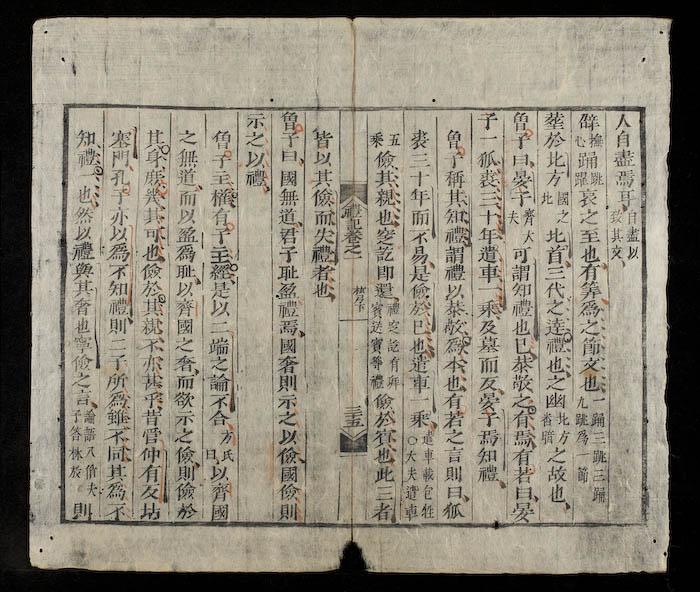 人自盡焉耳自盡以致其文
辟撫心踊跳躍哀之至也有筭為之節文也一踊三跳三踊九跳為一節
葬於北方國之北北首三代之達禮也之幽北方昏暗之故也
曾子曰晏子齊大夫可謂知禮也已恭敬之有焉有若曰晏
子一狐裘三十年遣車一乗及墓而反晏子焉知禮
曾子稱其知禮謂禮以恭敬為本也有若之言則曰狐
裘三十年而不易是儉於已也遣車一乗遣車載包牲○大夫遣車
五乗儉其親也窆訖即還禮窆訖有拜賓送賓等禮儉於賓也此三者
禮記卷之 檀弓下 三五
皆以其儉而失禮者也
曾子曰國無道君子耻盈禮焉國奢則示之以儉國儉則
示之以禮
曾子主權有子主經是以二端之論不合方氏曰以齊國
之無道而以盈為耻以齊國之奢而欲示之儉則儉於
其身庶幾其可也儉於其親不亦甚乎昔管仲有反坫
塞門孔子亦以為不知禮則二子所為雖不同其為不
知禮一也然以禮與其奢也寧儉之言論語八佾夫子答林放則